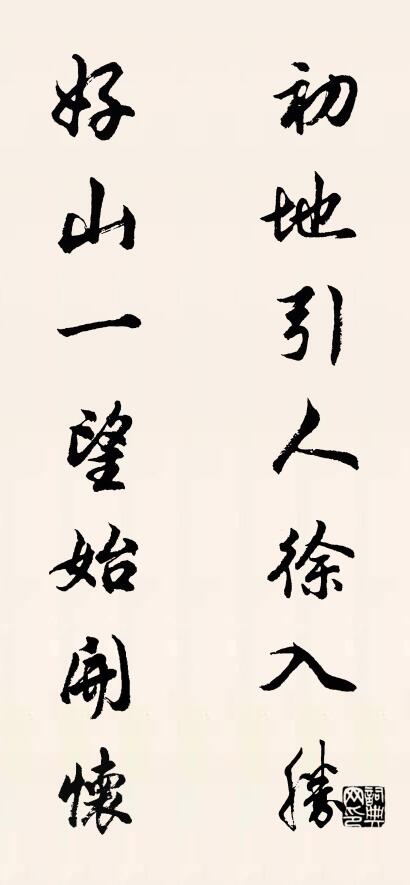 初地引人徐入勝
好山一望始開懷
詞典网印